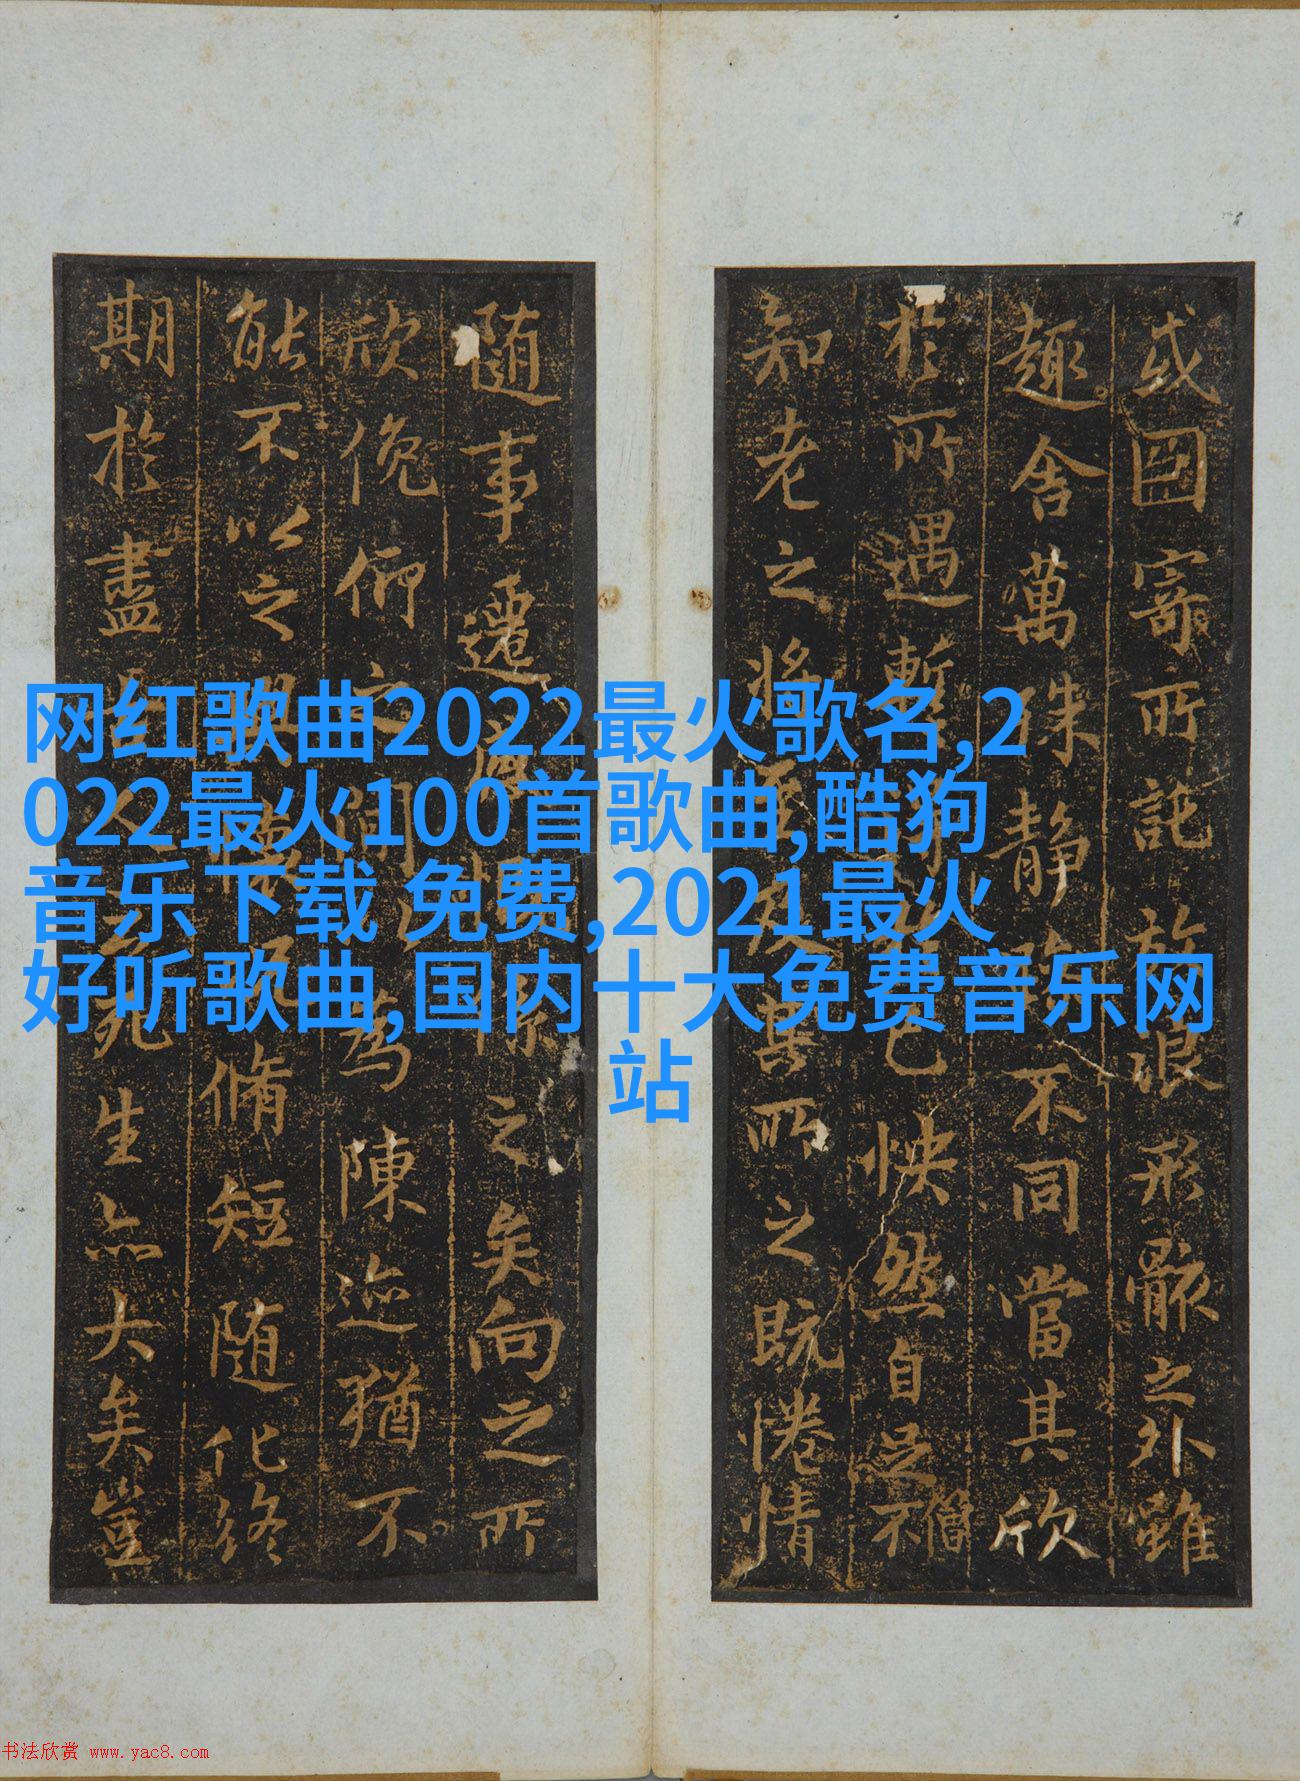 网红歌曲2022最火歌名,2
022最火100首歌曲,酷狗
音乐下载 免费,2021最火
好听歌曲,国内十大免费音乐网
站
或因寄所託放浪形骸之外雖
趣舍萬殊静不同當其欣
於所遇暫己快然自足不
僧
知老之將至及其所之既惓情
随事遷感係之矣向之所
欣俛仰之間以為陳迹猶不
能不以之興懷况脩短随化終
期於盡死生亦大矣豈
书法欣赏 www.yac8.com